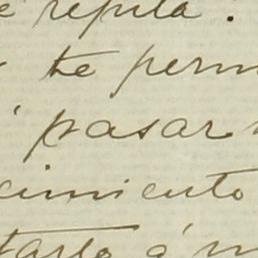 repita.
te perm
pasar
imiento
tarlo á m